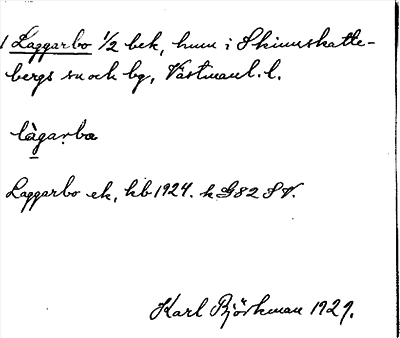 1 Laggarbo 1/2 bek, hum i Skinnskatte-
bergs sn och bg, Västmanl. l.
làgạrbo
Laggarbo ek, kb 1924. k G82 SV.
Karl Björkman 1929.